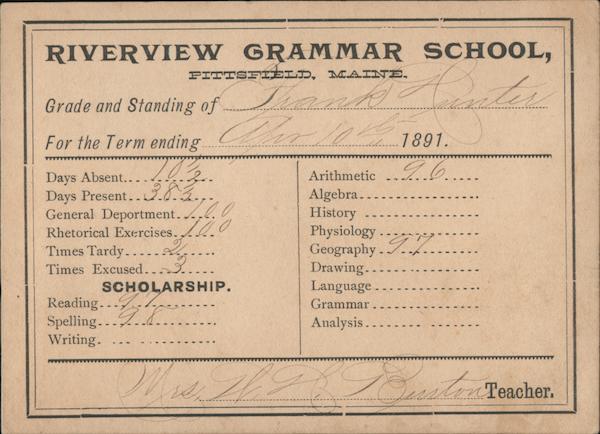 RIVERVIEW GRAMMAR SCHOOL,
PITTSFIELD, MAINE.
Grade and Standing of Frank Hunter
For the Term ending Apr 10th, 1891.
Days Absent 10½
Days Present 38½
General Deportment 100
Rhetorical Exercises 100
Times Tardy 2
Times Excused 3
SCHOLARSHIP.
Reading 97
Spelling 98
Writing
Arithmetic 96
Algebra
History
Physiology
Geography 97
Drawing
Language
Grammar
Analysis
Mrs. Burton Teacher.